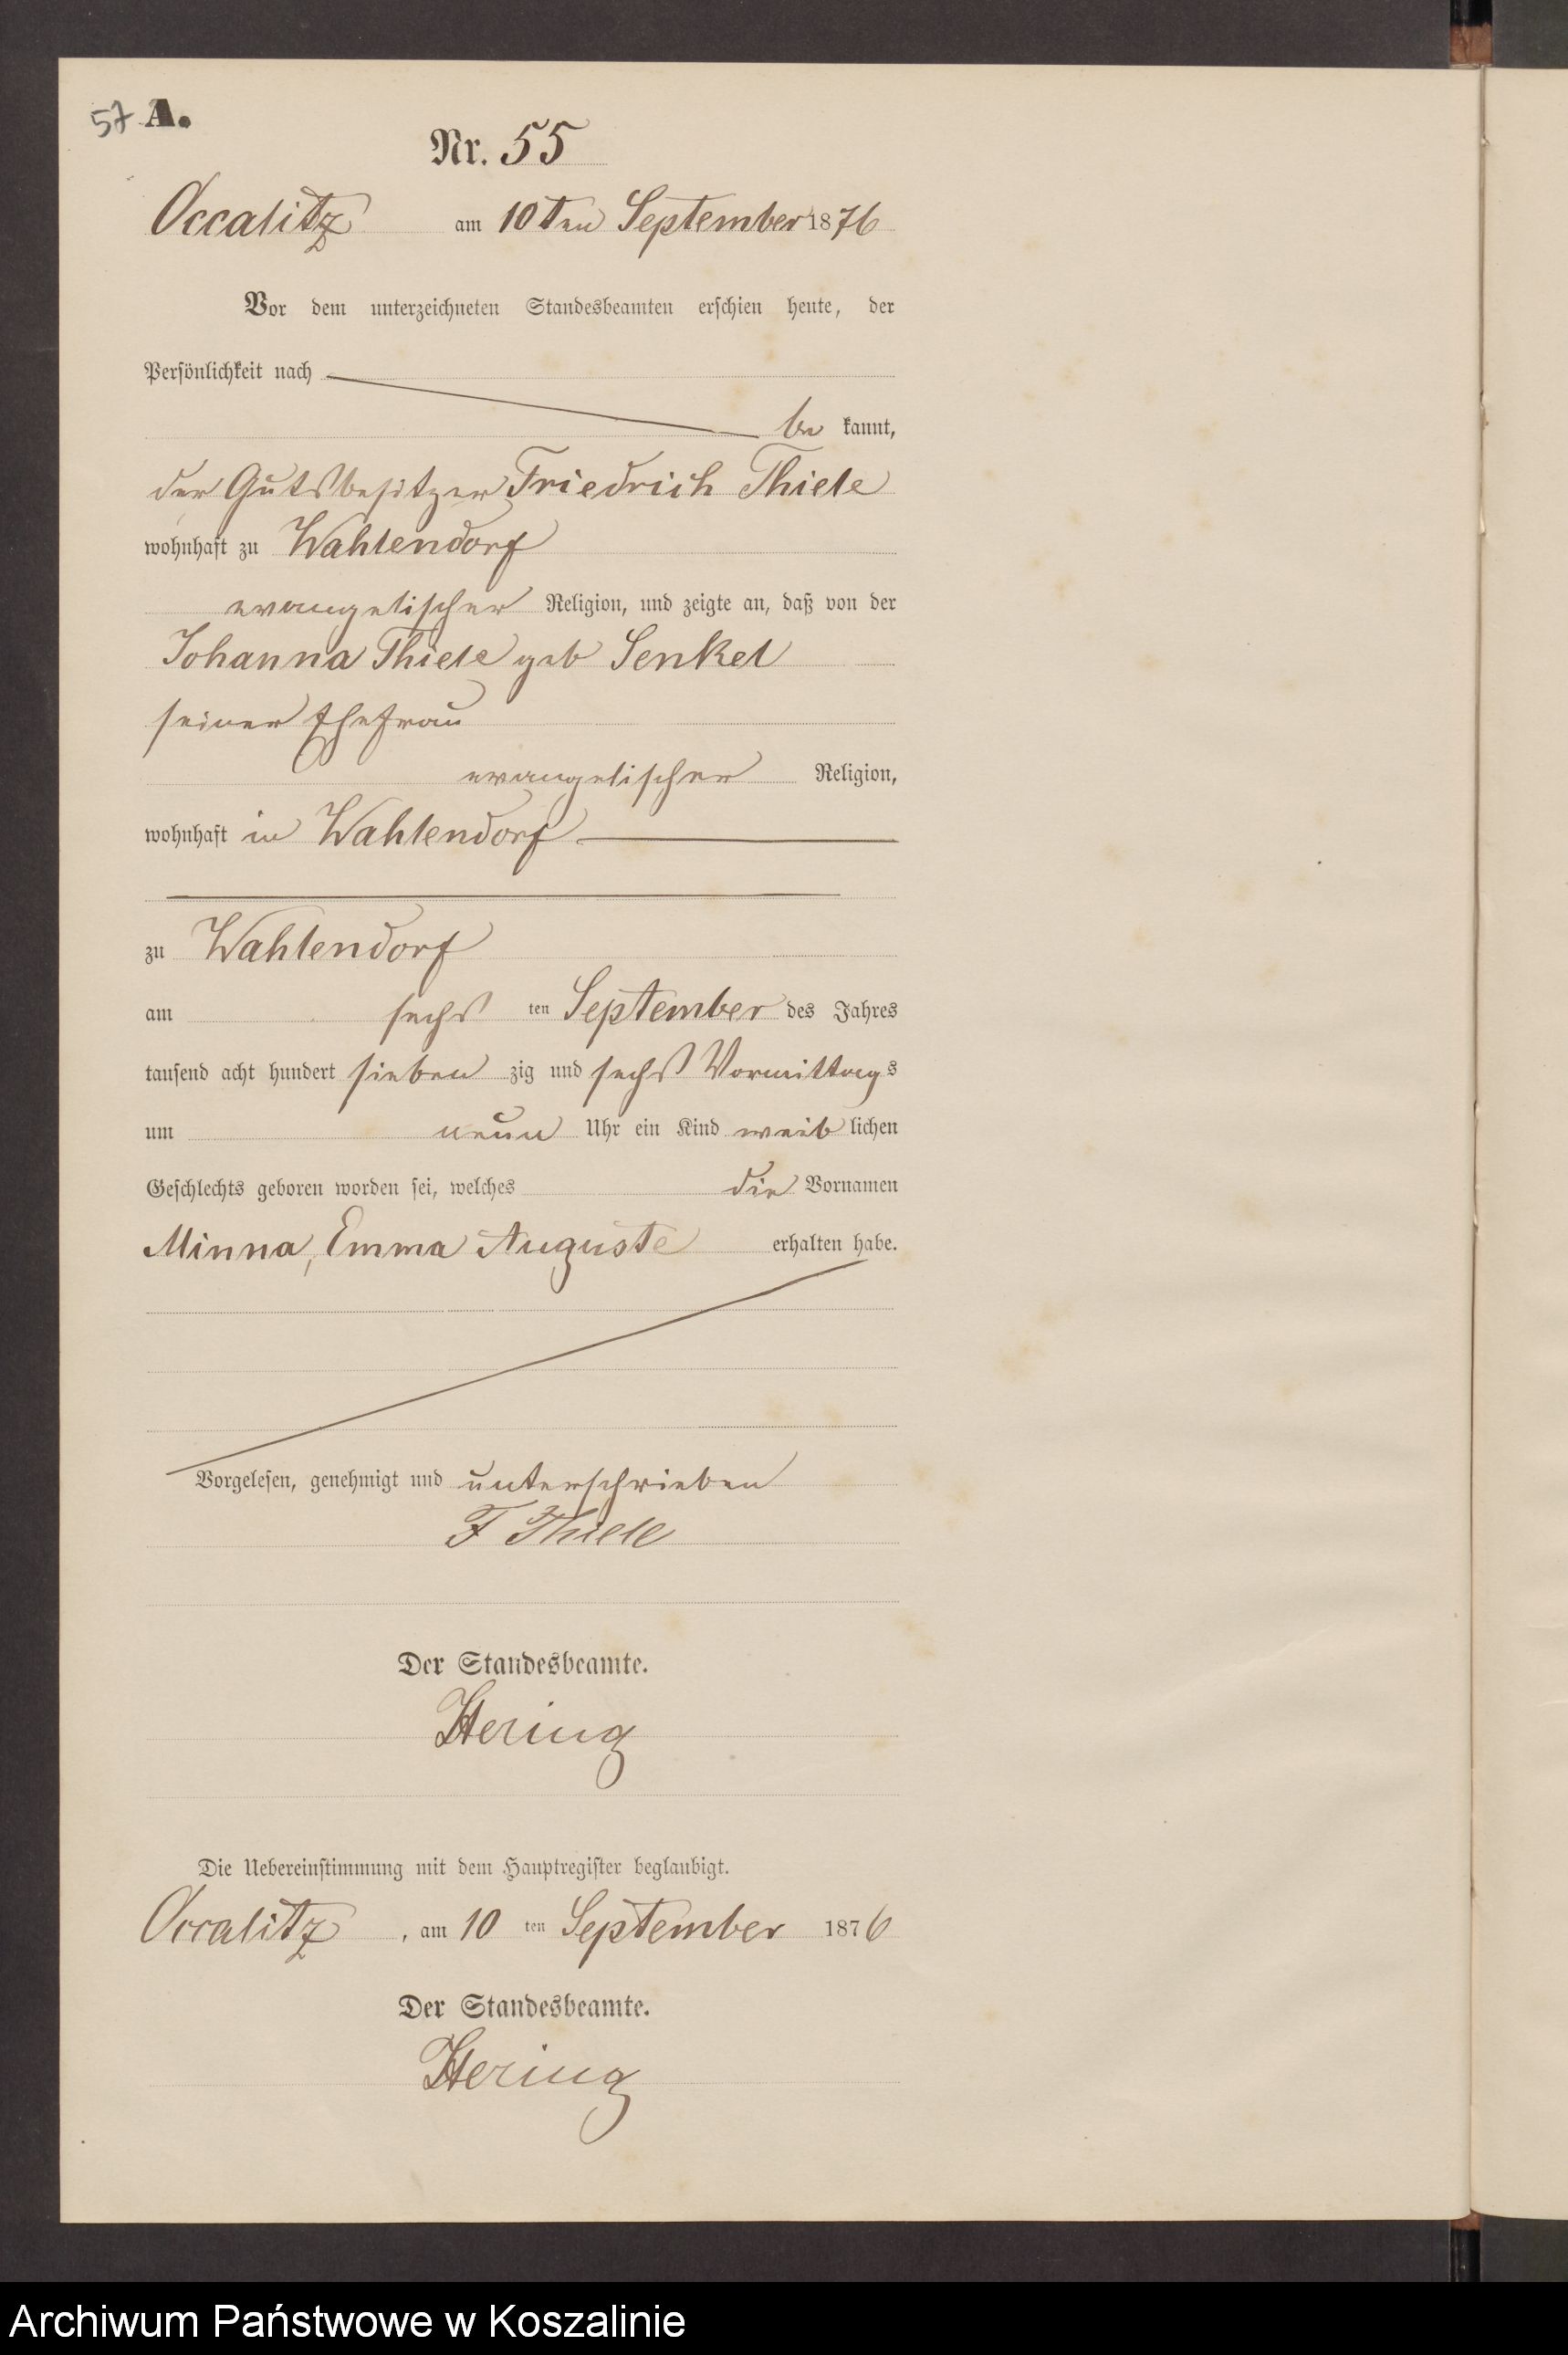 57 A.
Nr. 55
Occalitz am 10ten September 1876
Vor dem unterzeichneten Standesbeamten erschien heute, der
Persönlichkeit nach
be kannt,
der Gutsbesitzer Friedrich Thiele
wohnhaft zu Wahlendorf
evangelischer Religion, und zeigte an, daß von der
Johanna Thiele geb Senkel
seiner Ehefrau
evangelischer Religion,
wohnhaft in Wahlendorf
zu Wahlendorf
am sechs ten September des Jahres
tausend acht hundert sieben zig und sechs Vormittags
um neun Uhr ein Kind weib lichen
Geschlechts geboren worden sei, welches die Vornamen
Minna, Emma Auguste erhalten habe.
Vorgelesen, genehmigt und unterschrieben
F Thiele
Der Standesbeamte.
Hering
Die Uebereinstimmung mit dem Hauptregister beglaubigt.
Occalitz, am 10 ten September 1876
Der Standesbeamte.
Hering
Archiwum Państwowe w Koszalinie